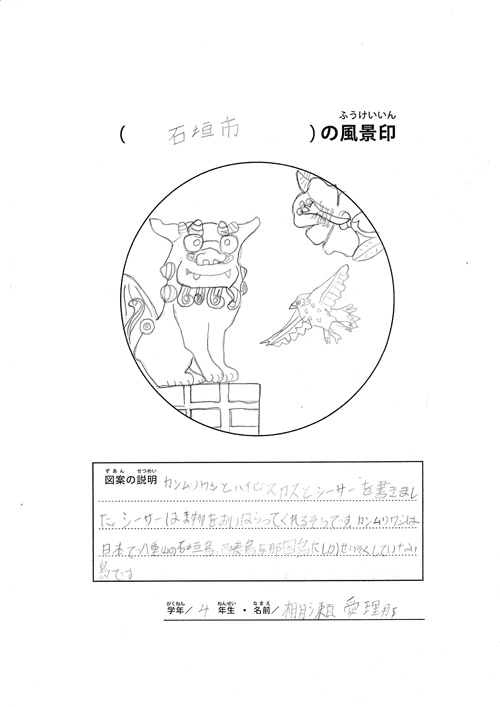 ふうけいいん
( 石垣市 )の風景印
ずあん せつめい
図案の説明 カンムリワシとハイビスカスとシーサーを書きまし
た。シーサーはま物をおいはらってくれるそうです。カンムリワシは
日本で八重山の石垣島、西表島、与那国島にしかせいそくしていない
鳥です
がくねん ねんせい なまえ
学年/ 4 年生・名前/ 愛理那